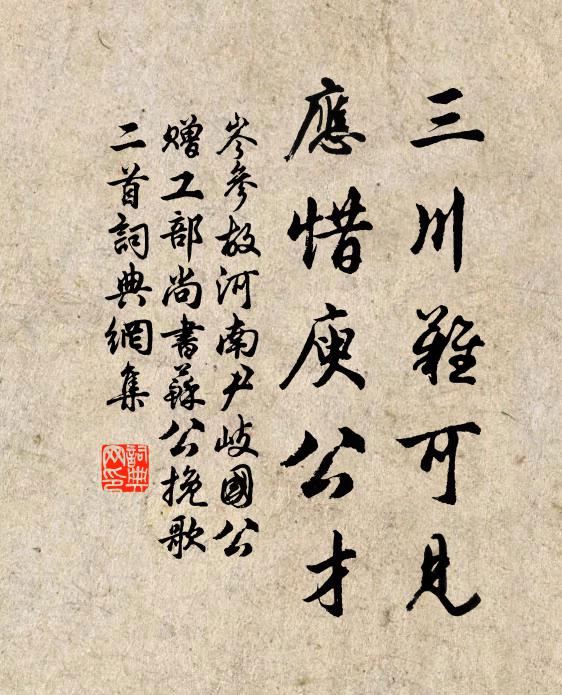 三川難可見
應惜庾公才
岑參故河南尹岐國公
贈工部尚書蘇公挽歌
二首詞典網集
詞典
網印